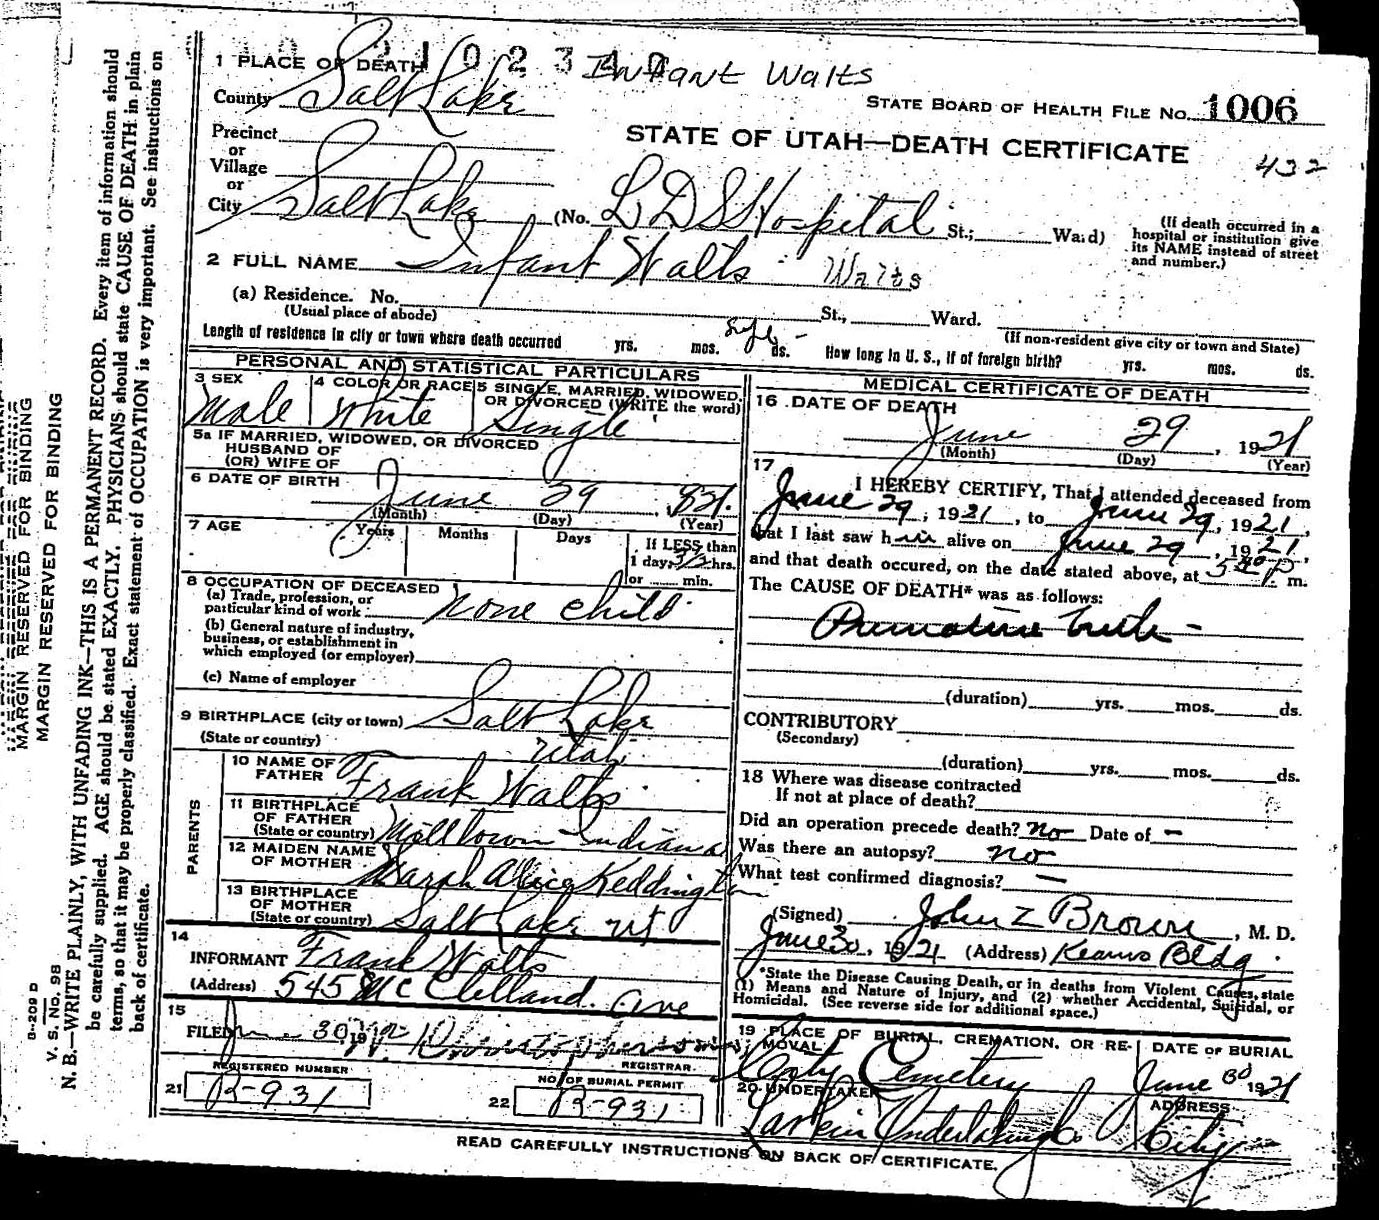 2102340 Infant Walts
1 PLACE OF DEATH
County Salt Lake
STATE BOARD OF HEALTH FILE No. 1006
STATE OF UTAH—DEATH CERTIFICATE
432
Precinct
or
Village
or
City Salt Lake (No. LDS Hospital St.; Ward)
(If death occurred in a hospital or institution give its NAME instead of street and number.)
2 FULL NAME Infant Walts Walts
(a) Residence. No. St., Ward.
(Usual place of abode) (If non-resident give city or town and State)
Length of residence in city or town where death occurred yrs. mos. ds. How long in U. S., if of foreign birth? yrs. mos. ds.
PERSONAL AND STATISTICAL PARTICULARS
3 SEX 4 COLOR OR RACE 5 SINGLE, MARRIED, WIDOWED, OR DIVORCED (WRITE the word)
Male White Single
5a IF MARRIED, WIDOWED, OR DIVORCED
HUSBAND OF
(OR) WIFE OF
6 DATE OF BIRTH
June 29
(Month) (Day) (Year)
7 AGE Years Months Days If LESS than
1 day, hrs.
or min.
8 OCCUPATION OF DECEASED
(a) Trade, profession, or
particular kind of work none child
(b) General nature of industry,
business, or establishment in
which employed (or employer)
(c) Name of employer
9 BIRTHPLACE (city or town) Salt Lake
(State or country) Utah
PARENTS
10 NAME OF
FATHER Frank Walts
11 BIRTHPLACE
OF FATHER
(State or country) Milltown Indiana
12 MAIDEN NAME
OF MOTHER Sarah Alice Keddington
13 BIRTHPLACE
OF MOTHER
(State or country) Salt Lake Ut
14
INFORMANT Frank Walts
(Address) 545 McClelland Ave
15
FILED June 30 19 Christophersom
REGISTRAR.
REGISTERED NUMBER NO. OF BURIAL PERMIT
21 B-931 22 B-931
MEDICAL CERTIFICATE OF DEATH
16 DATE OF DEATH
June 29, 1921
(Month) (Day) (Year)
17
I HEREBY CERTIFY, That I attended deceased from
June 29, 1921, to June 29, 1921,
that I last saw him alive on June 29, 1921,
and that death occured, on the date stated above, at m.
The CAUSE OF DEATH* was as follows:
Premature birth -
(duration) yrs. mos. ds.
CONTRIBUTORY
(Secondary)
(duration) yrs. mos. ds.
18 Where was disease contracted
If not at place of death?
Did an operation precede death? no Date of —
Was there an autopsy? no
What test confirmed diagnosis? —
(Signed) John Z Brown, M. D.
June 30, 1921 (Address) Kearns Bldg.
*State the Disease Causing Death, or in deaths from Violent Causes, state
(1) Means and Nature of Injury, and (2) whether Accidental, Suicidal, or
Homicidal. (See reverse side for additional space.)
19 PLACE OF BURIAL, CREMATION, OR RE-
MOVAL DATE OF BURIAL
City Cemetery June 30 1921
20 UNDERTAKER ADDRESS
Larkin Undertaking Co City
READ CAREFULLY INSTRUCTIONS ON BACK OF CERTIFICATE.
MARGIN RESERVED FOR BINDING
MARGIN RESERVED FOR BINDING
8-209 D
V. S. No. 98
N. B.—WRITE PLAINLY, WITH UNFADING INK—THIS IS A PERMANENT RECORD. Every item of information should
be carefully supplied. AGE should be stated EXACTLY. PHYSICIANS should state CAUSE OF DEATH in plain
terms, so that it may be properly classified. Exact statement of OCCUPATION is very important. See instructions on
back of certificate.